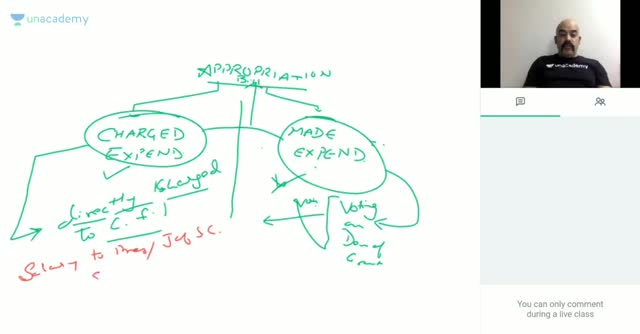 unacademy
APPROPRIATION
Bill
CHARGED
EXPEND
MADE
EXPEND
directly charged
to C.f.I
Salary to Pres/ J of SC.
Voting
on
Dem of
Grant
unacademy
You can only comment
during a live class